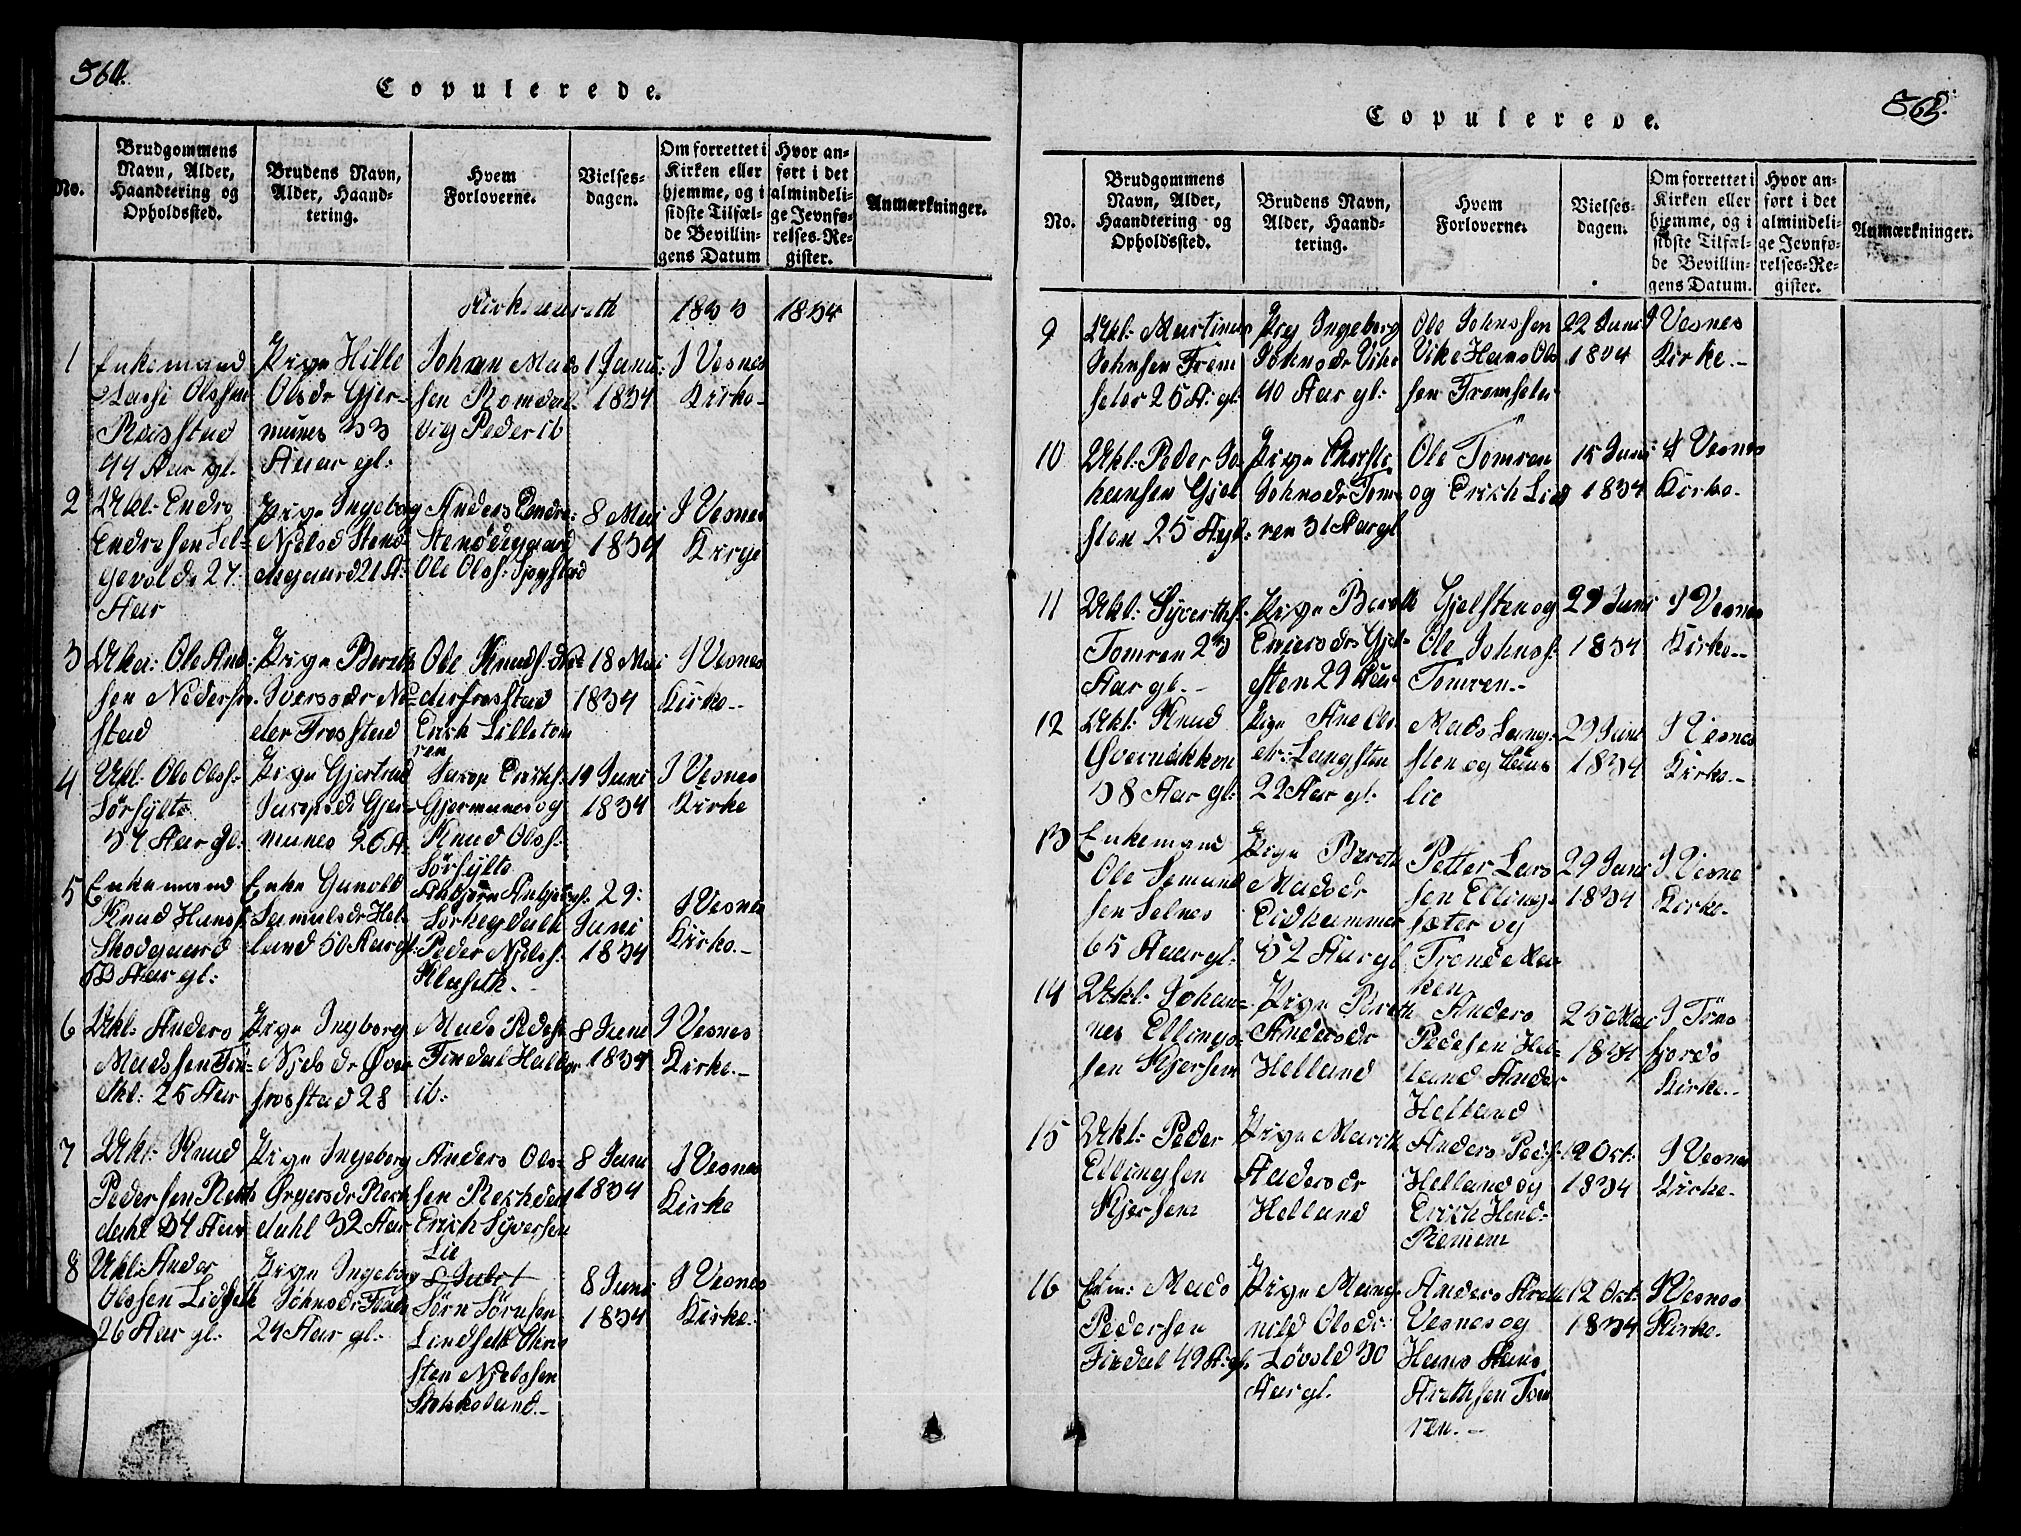 364.
Copulerede.
No.
Brudgommens Navn, Alder, Haandtering og Opholdssted.
Brudens Navn, Alder, Haandtering.
Hvem Forloverne.
Vielsesdagen.
Om forrettet i Kirken eller hjemme, og i sidste Tilfælde Bevillingens Datum
Hvor anført i det almindelige Jevnførelses-Register.
Anmærkninger.
1833 1834
1
Enkemand
Olssen
44 Aar gl.
Pige Hille
Olsdr Gjer-
munes 33
Aar gl:
Johan Mads
sen Romdal-
vig Peder ib
1 Juni:
1834
I Vesnes
Kirke-
2
Ukl: Endre
Endresen Sel-
gevold 27
Aar
Pige Ingeborg
21 A:
Anders Endre:
Ole Olss:
8 Mai
1834
I Vesnes
Kirge
3
Ole And-
sen
stad
Pige Bereth
Iversdr Ne-
der Frostad
Ole Knuds:
derfrostad
Erich Lilletom
ren
18 Mai
1834
I Vesnes
Kirke.-
4
Ukl: Ole Olss:
Sørsylte
34 Aar gl:
Pige Gjertrud
Gjer-
munes 26 A
Erichs:
Gjermunes og
Knud Olss:
Sørsylte
19 Juni
1834
I Vesnes
Kirke
5
Enkemand
Knud Hanss:
Skodgaard
Aar gl:
Enke Gunold
Samulsdr Hel-
land 50 Aar gl:
Peder Njelss:
29:
Juni
1834
I Vesnes
Kirke.-
6
Ukl: Anders
Madssen
25 Aar
Pige Ingborg
Njelsdr Øver
frostad 28
Mads Peders:
Findal
ib:
8 Juni
1834
I Vesnes
Kirke.-
7
Ukl: Knud
Pedersen Rekdahl
34 Aar
Pige Ingeborg
dahl 32 Aar
Anders Ols-
sen Rekdal
Erich Syversen
Lie
8 Juni
1834
I Vesnes
Kirke
8
Ukl: Ander
Olssen Lidseth
26 Aar gl:
Pige Ingeborg
Johnsdr
24 Aar gl:
Sørn Sørnsen
Lindseth
sten Njelssen
8 Juni
1834
I Vesnes
Kirke.
365.
Copulerede.
No.
Brudgommens Navn, Alder, Haandtering og Opholdssted.
Brudens Navn, Alder, Haandtering.
Hvem Forloverne.
Vielsesdagen.
Om forrettet i Kirken eller hjemme, og i sidste Tilfælde Bevillingens Datum.
Hvor anført i det almindelige Jevnførelses-Register.
Anmærkninger.
9
Ukl: Martinus
Johnsen Frem
seter 25 A: gl:
Pig Ingeborg
Johnsdr Vike
40 Aar gl:
Ole Johnssen
Vike Hans Ols
sen Fremseter
22 Juni
1834
I Vesnes
Kirke.-
10
Ukl: Peder Jo-
hansen Gjel
sten 25 A gl:
Pige
Johnsdr Tom-
ren 31 Aar gl
Ole Tomren
og Erich Lied
15 Juni
1834
I Vesnes
Kirke.
11
Ukl: Syverths:
Tomren 23
Aar gl.-
Pige Bereth
Gjel-
sten 29 Aar
Gjelsten og
Ole Johnss:
Tomren.-
29 Juni
1834
I Vesnes
Kirke.-
12
Ukl: Knud
38 Aar gl:
Pige Ane Ols
dr: Langsten
22 Aar gl:
Mads Lang-
sten og Hans
Lie
29 Juni
1834
I Vesnes
Kirke.-
13
Enkemand
Ole Semund
sen Selnes
65 Aar gl:
Pige Bereth
Madsdr
Eidhammer
52 Aar gl
Petter Lars
sen Ellings-
sæter og
Trond
29 Juni
1834
I Vesne
Kirke.
14
Ukl: Johan-
nes Ellings-
sen Kjersem
Pige Bereth
Andersdr
Helland
Anders
Pedesen Hel-
land Ander
Helland
25 Mai
1834
I
fjords
Kirke.-
15
Ukl: Peder
Ellingsen
Kjersem
Pige Marith
Andersdr
Helland
Anders Peds:
Helland og
Erich Hend-
Remem
12 Oct:
1834
I Vesnes
Kirke.
16
Mads
Pedersen
Findal 49 A: gl.
Pige Mang-
nild Olsdr:
Løvold 30
Aar gl.
Anders Areth
Vesnes og
Hans Hans
Arethsen Tom
ren.-
12 Oct:
1834
I Vesnes
Kirke.